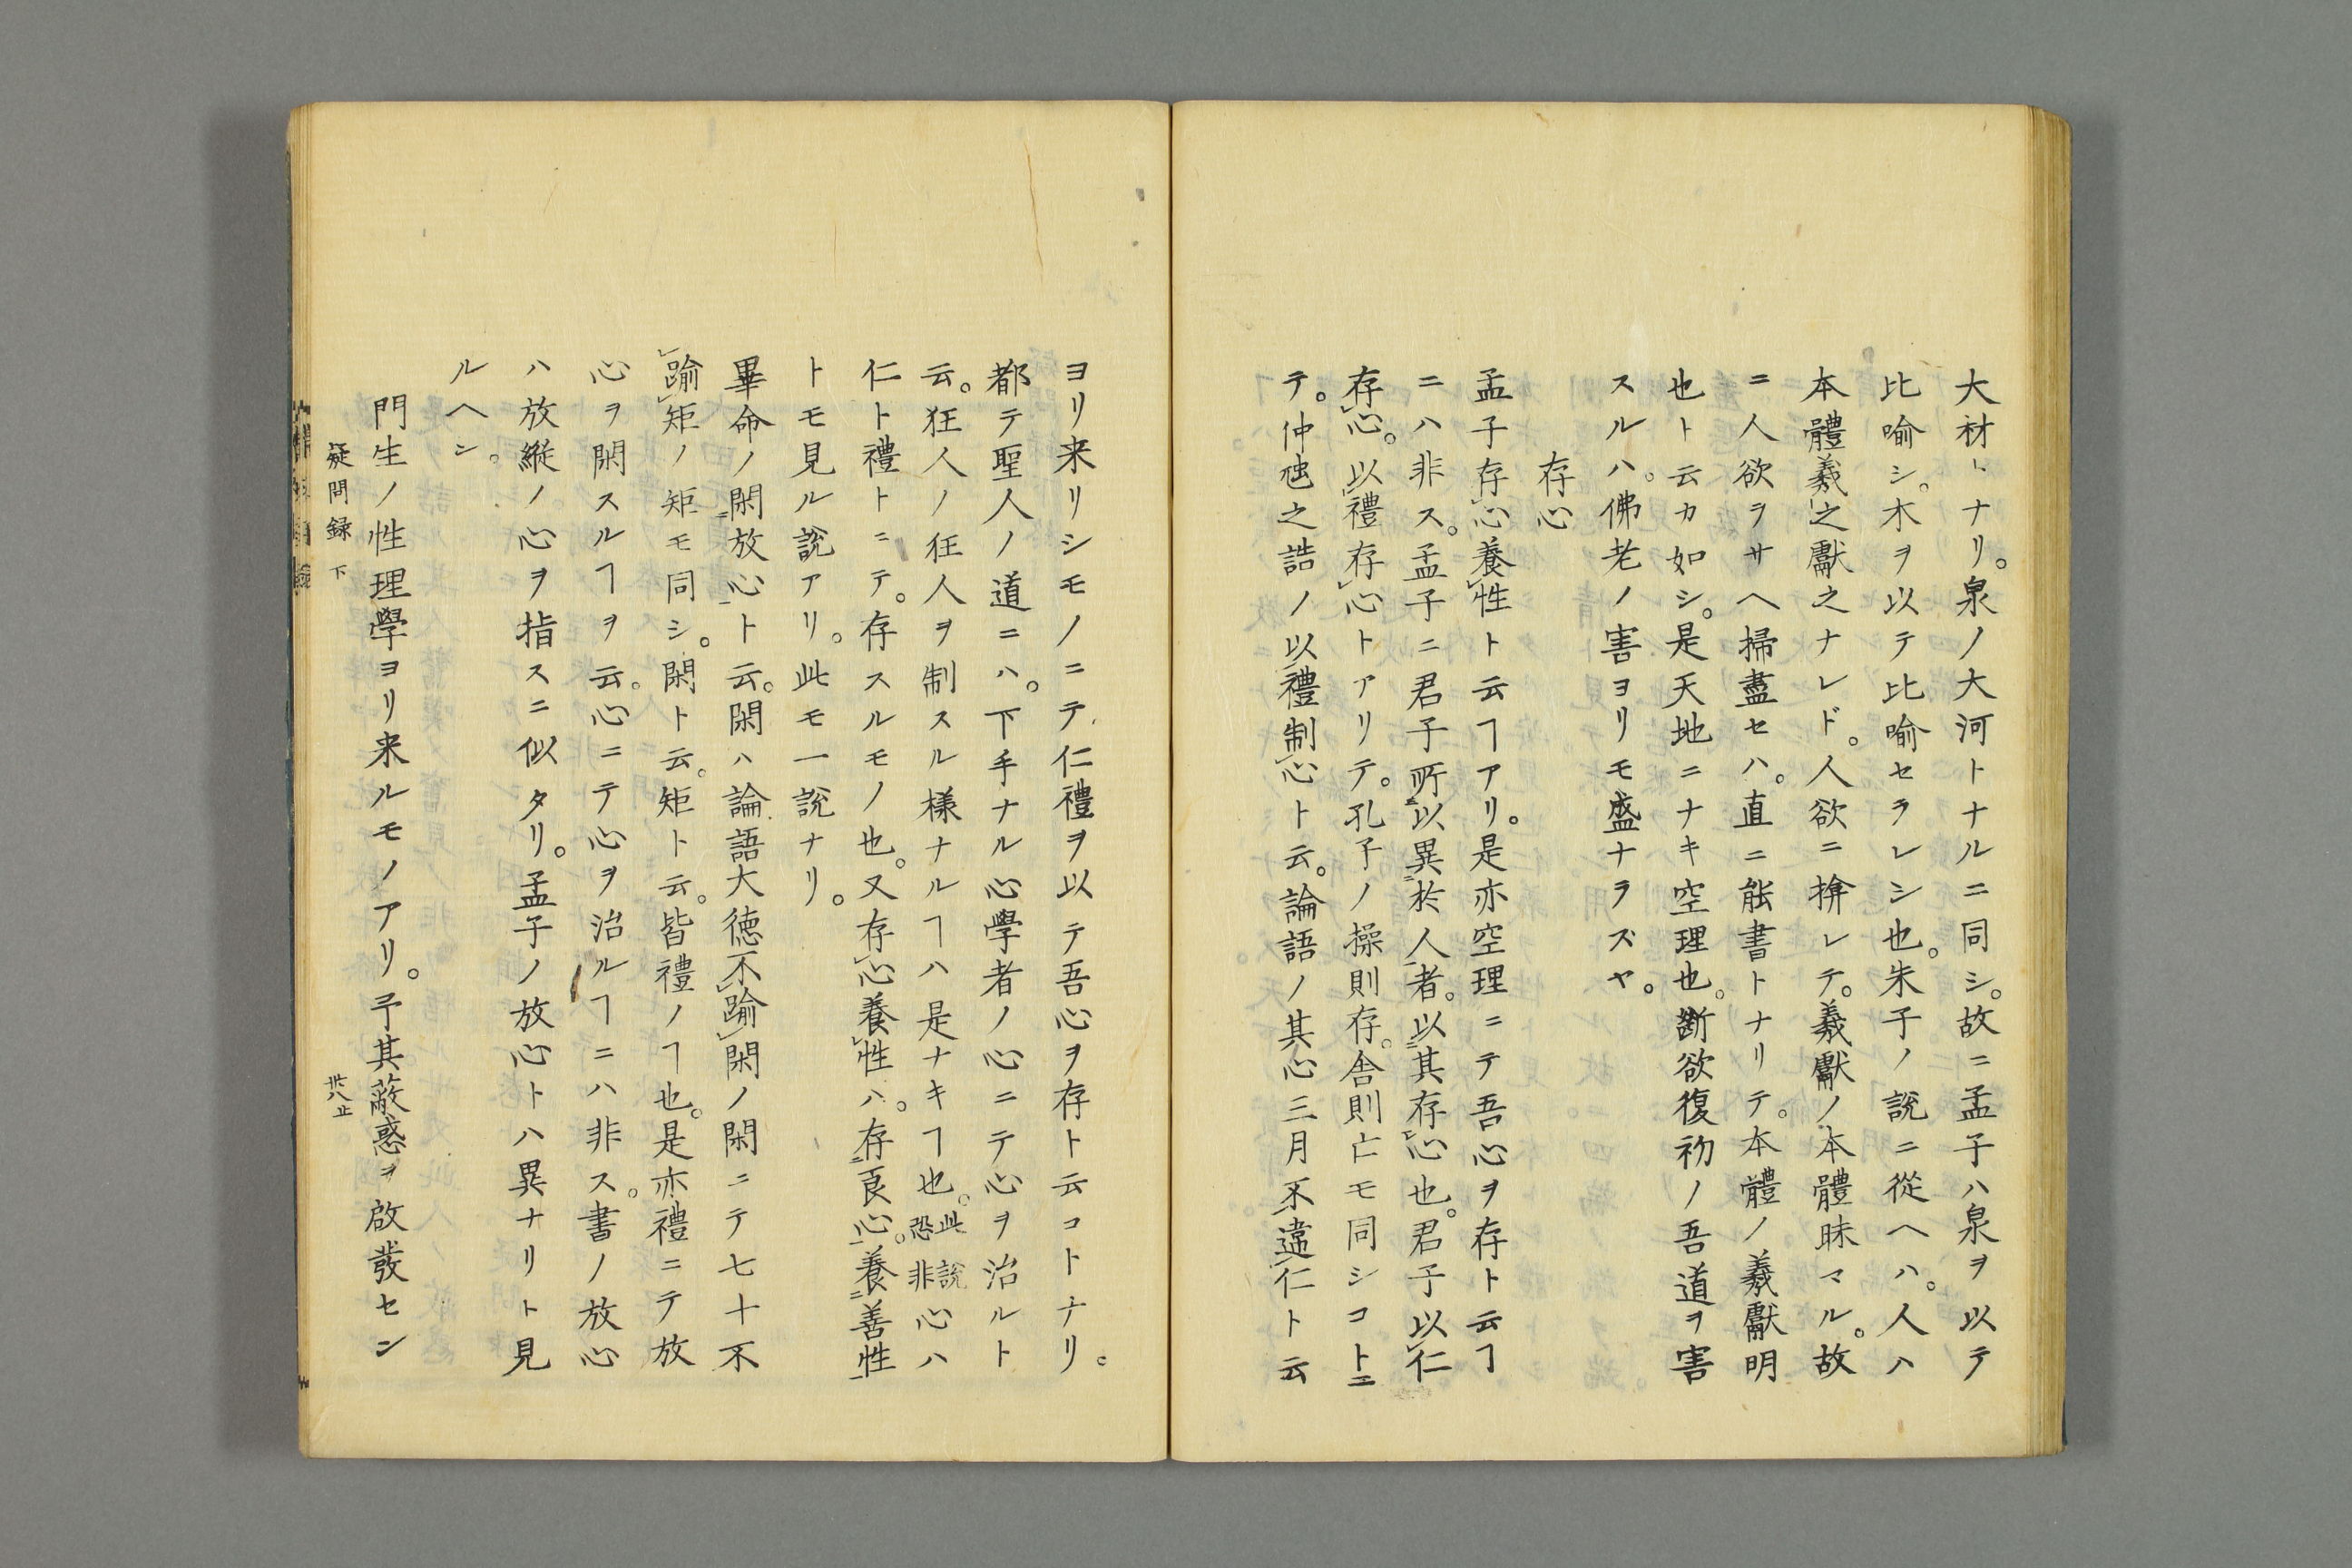 大材トナリ。泉ノ大河トナルニ同シ。故ニ孟子ハ泉ヲ以テ
比喻シ。木ヲ以テ比喻セラレシ也。朱子ノ説ニ從ヘハ。人ハ
本體羲之獻之ナレド。人欲ニ揜レテ。羲獻ノ本體昧マル。故
ニ人欲ヲサヘ掃盡セハ。直ニ能書トナリテ。本體ノ羲獻明
也ト云カ如シ。是天地ニナキ空理也。斷欲復初ノ吾道ヲ害
スルハ。佛老ノ害ヨリモ盛ナラズヤ。
存心
孟子存心養性ト云ヿアリ。是亦空理ニテ吾心ヲ存ト云ヿ
ニハ非ス。孟子ニ君子所以異於人者。以其存心也。君子以仁
存心。以禮存心トアリテ。孔子ノ操則存。舍則亡モ同シコトニ
テ。仲虺之誥ノ以禮制心ト云。論語ノ其心三月不違仁ト云
ヨリ来リシモノニテ仁禮ヲ以テ吾心ヲ存ト云コトナリ。
都テ聖人ノ道ニハ。下手ナル心學者ノ心ニテ心ヲ治ルト
云。狂人ノ狂人ヲ制スル様ナルヿハ是ナキヿ也。此說恐非心ハ
仁ト禮トニテ。存スルモノ也。又存心養性ハ。存良心。養善性
トモ見ル說アリ。此モ一說ナリ。
畢命ノ閑放心ト云。閑ハ論語大德不踰閑ノ閑ニテ七十不
踰矩ノ矩モ同シ。閑ト云。矩ト云。皆禮ノヿ也。是亦禮ニテ放
心ヲ閑スルヿヲ云。心ニテ心ヲ治ルヿニハ非ス。書ノ放心
ハ放縱ノ心ヲ指スニ似タリ。孟子ノ放心トハ異ナリト見
ルヘシ。
門生ノ性理學ヨリ来ルモノアリ。予其蔽惑ヲ啟發セン
疑問録 下
卅八止